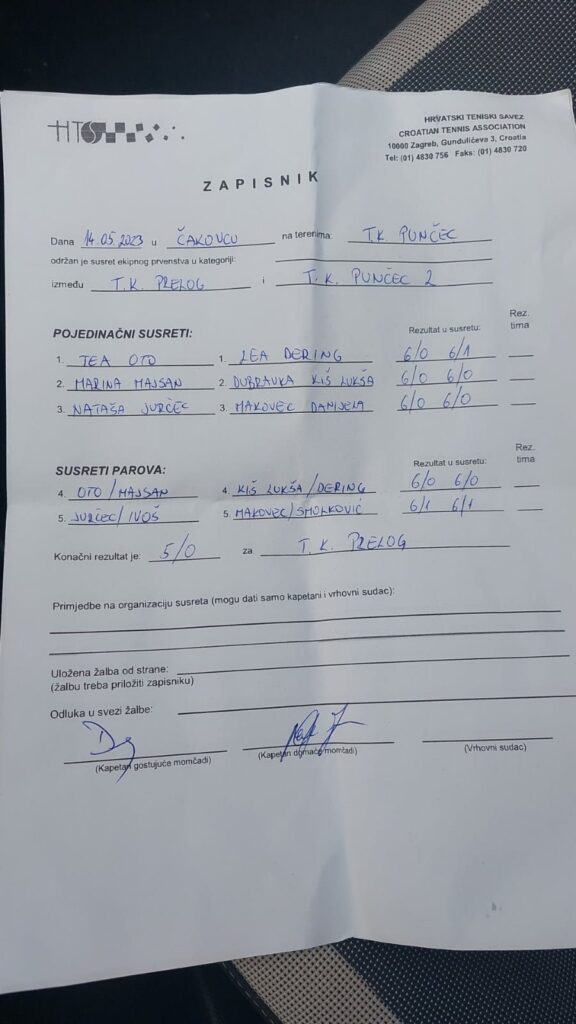 HTS
HRVATSKI TENISKI SAVEZ
CROATIAN TENNIS ASSOCIATION
10000 Zagreb, Gundulićeva 3, Croatia
Tel: (01) 4830 756 Faks: (01) 4830 720
ZAPISNIK
Dana 14.05.2023 u ČAKOVCU na terenima: T.K. PUNČEC
održan je susret ekipnog prvenstva u kategoriji:
između T.K. PRELOG i T.K. PUNČEC 2
POJEDINAČNI SUSRETI: Rezultat u susretu: Rez. tima
1. TEA OTO 1. LEA DERING 6/0 6/1
2. MARINA MAJSAN 2. DUBRAVKA KIŠ LUKŠA 6/0 6/0
3. NATAŠA JURČEC 3. MAKOVEC DANIJELA 6/0 6/0
SUSRETI PAROVA: Rezultat u susretu: Rez. tima
4. OTO/MAJSAN 4. KIŠ LUKŠA/DERING 6/0 6/0
5. JURČEC/IVOŠ 5. MAKOVEC/SMOLKOVIĆ 6/1 6/1
Konačni rezultat je: 5/0 za T.K. PRELOG
Primjedbe na organizaciju susreta (mogu dati samo kapetani i vrhovni sudac):
Uložena žalba od strane:
(žalbu treba priložiti zapisniku)
Odluka u svezi žalbe:
(Kapetan gostujuće momčadi) (Kapetan domaće momčadi) (Vrhovni sudac)